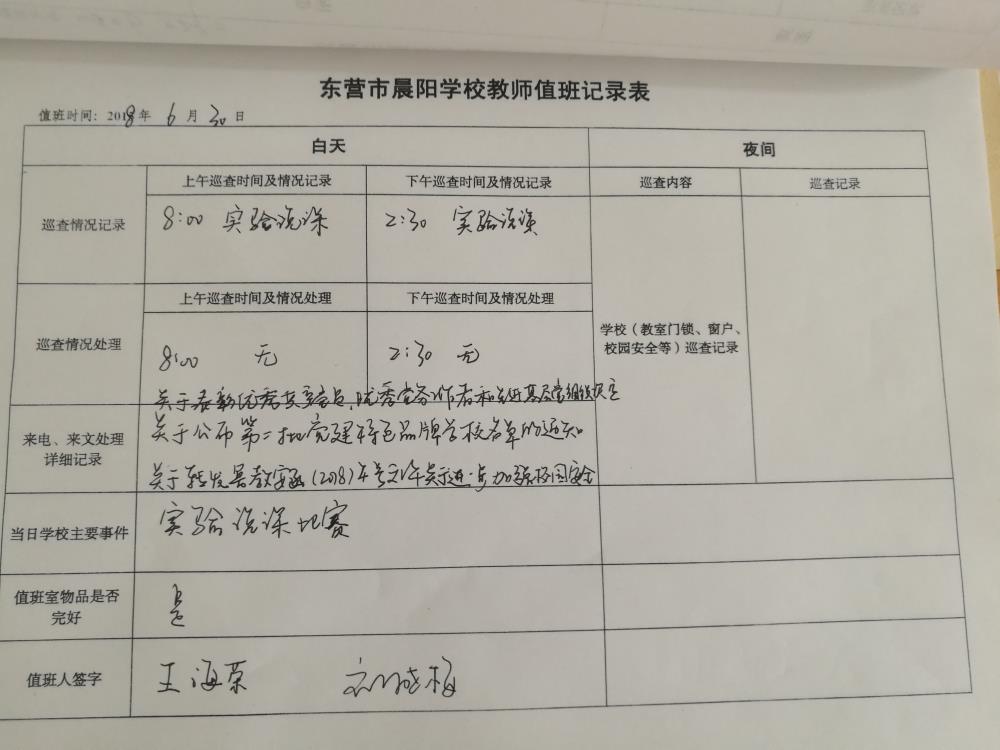 东营市晨阳学校教师值班记录表
值班时间：2018年 6 月 30 日
白天 夜间
巡查情况记录 上午巡查时间及情况记录 下午巡查时间及情况记录 巡查内容 巡查记录
8:00 实验说课 2:30 实验说课
巡查情况处理 上午巡查时间及情况处理 下午巡查时间及情况处理
学校（教室门锁、窗户、
校园安全等）巡查记录
8:00 无 2:30 无
关于表彰优秀共产党员、优秀党务工作者和先进基层党组织决定
来电、来文处理
详细记录
关于公布第二批党建特色品牌学校名单的通知
关于转发 (2018) 号文件关于进一步加强校园安全
当日学校主要事件 实验说课比赛
值班室物品是否
完好
是
值班人签字 王海荣 刘晓梅